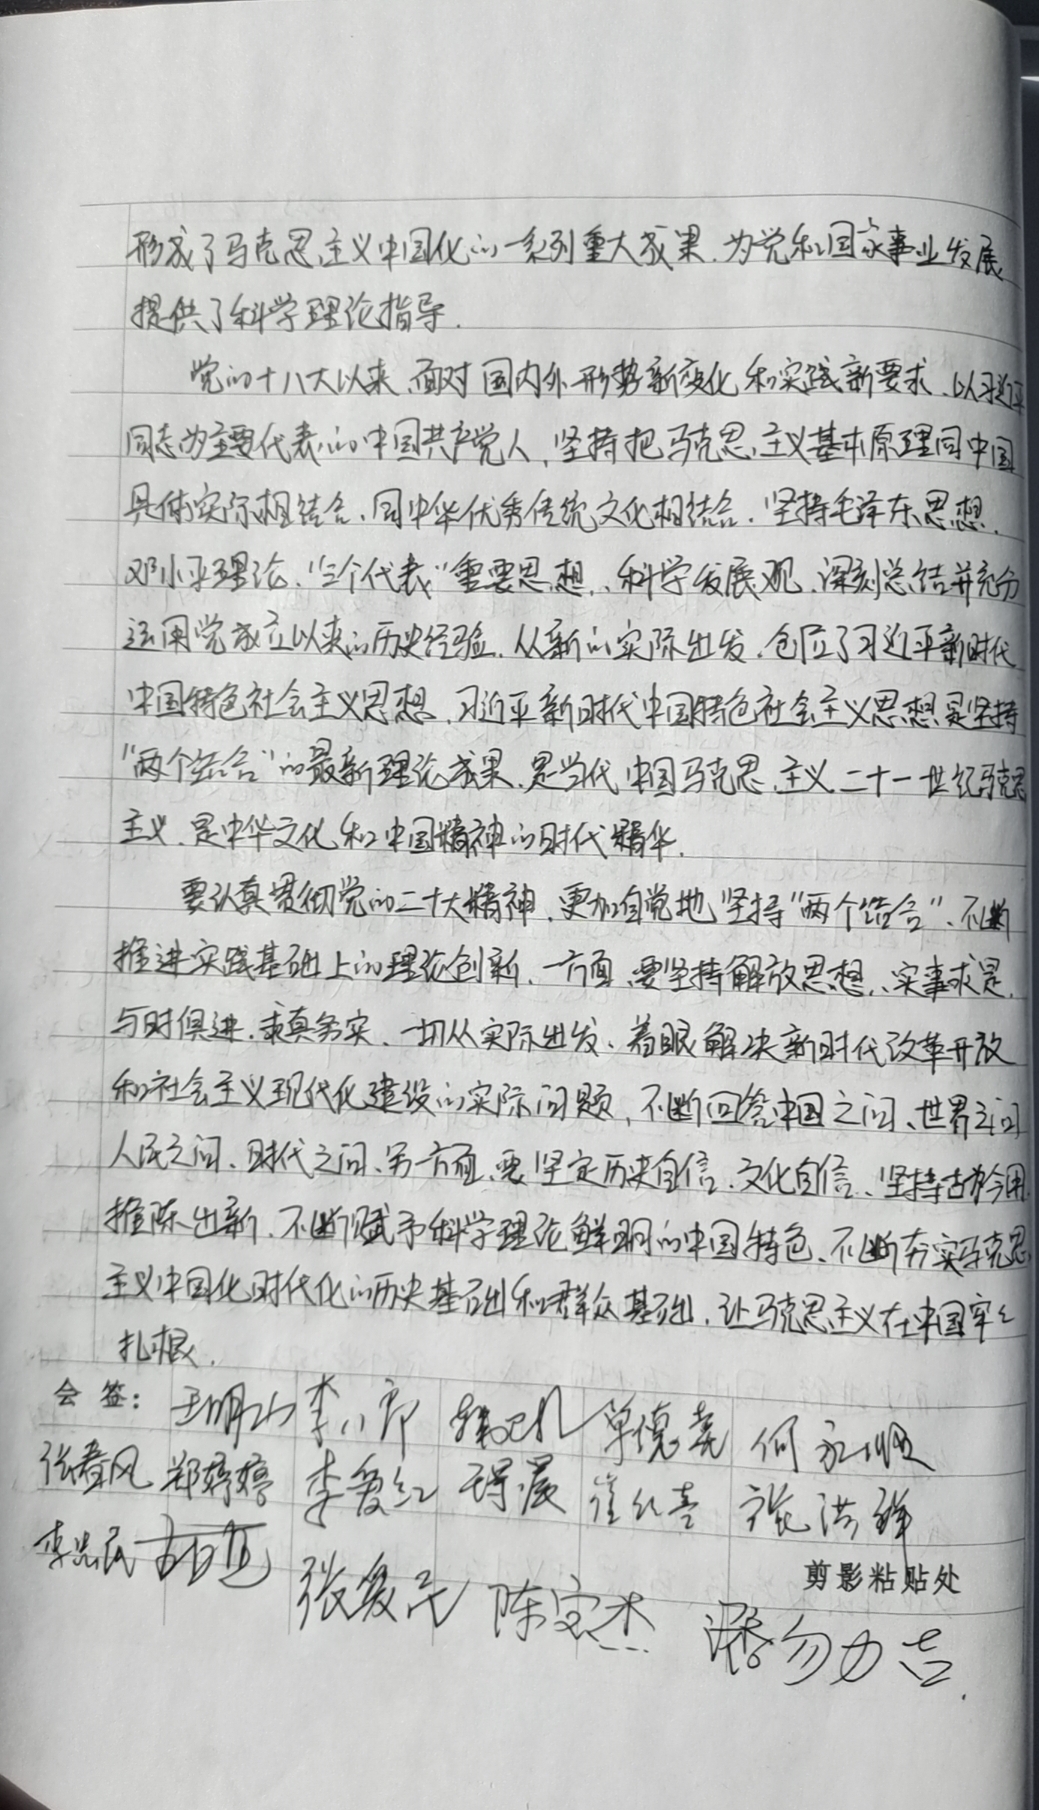 形成了马克思主义中国化的一系列重大成果，为党和国家事业发展
提供了科学理论指导．
党的十八大以来，面对国内外形势新变化和实践新要求，以习近平
同志为主要代表的中国共产党人，坚持把马克思主义基本原理同中国
具体实际相结合、同中华优秀传统文化相结合．坚持毛泽东思想、
邓小平理论、“三个代表”重要思想、科学发展观，深刻总结并充分
运用党成立以来的历史经验，从新的实际出发，创立了习近平新时代
中国特色社会主义思想，习近平新时代中国特色社会主义思想是坚持
“两个结合”的最新理论成果，是当代中国马克思主义、二十一世纪马克思
主义，是中华文化和中国精神的时代精华．
要认真贯彻党的二十大精神，更加自觉地坚持“两个结合”，不断
推进实践基础上的理论创新．一方面，要坚持解放思想、实事求是、
与时俱进、求真务实，一切从实际出发，着眼解决新时代改革开放
和社会主义现代化建设的实际问题，不断回答中国之问、世界之问
人民之问、时代之问．另一方面，要坚定历史自信、文化自信、坚持古为今用
推陈出新，不断赋予科学理论鲜明的中国特色，不断夯实马克思
主义中国化时代化的历史基础和群众基础，让马克思主义在中国牢々
扎根．
会 签： 李八郎 单德尧 何永顺
张春风 郑婷婷 李爱红 崔红喜 张洪锋
李忠民
剪影粘贴处
张爱民 陈宝杰 潘勿力吉．